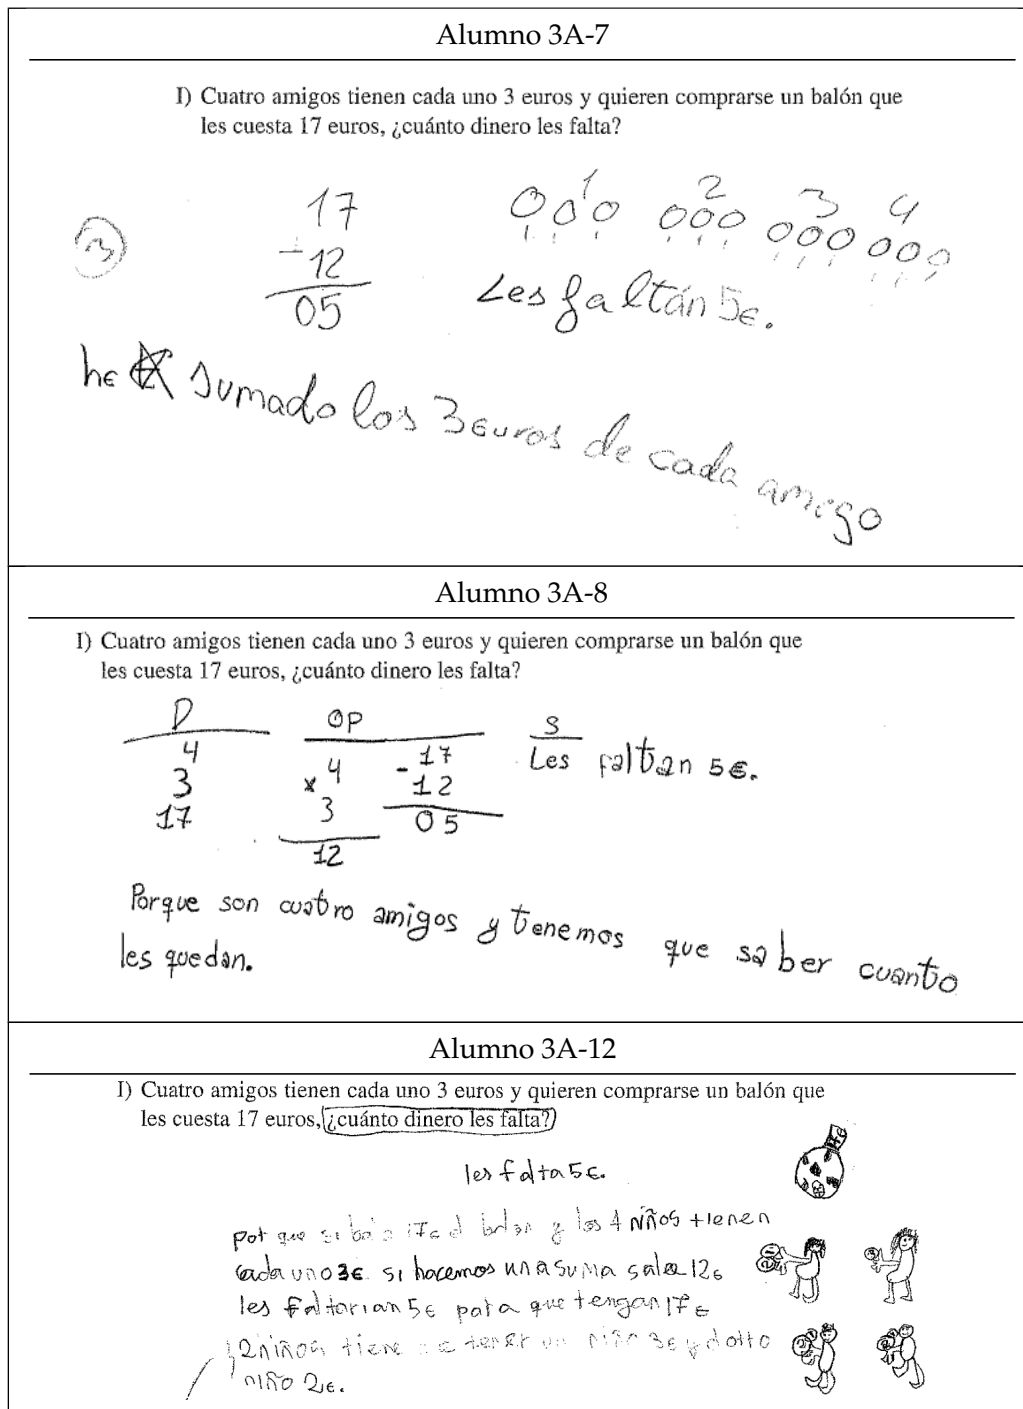 Alumno 3A-7
I) Cuatro amigos tienen cada uno 3 euros y quieren comprarse un balón que
les cuesta 17 euros, ¿cuánto dinero les falta?
1 2 3 4
000 000 000 000
17
-12
05
Les faltán 5€.
he sumado los 3 euros de cada amigo
Alumno 3A-8
I) Cuatro amigos tienen cada uno 3 euros y quieren comprarse un balón que
les cuesta 17 euros, ¿cuánto dinero les falta?
D OP S
4
3
17
4
x 3
12
-17
12
05
Les faltan 5€.
Porque son cuatro amigos y tenemos que saber cuanto
les quedan.
Alumno 3A-12
I) Cuatro amigos tienen cada uno 3 euros y quieren comprarse un balón que
les cuesta 17 euros, ¿cuánto dinero les falta?
les falta 5€.
por que si 17€ y los 4 niños tienen
cada uno 3€ si hacemos una suma sale 12€
les faltarian 5€ para que tengan 17€
2 niños tiene tener un niño 3€ y
niño 2€.